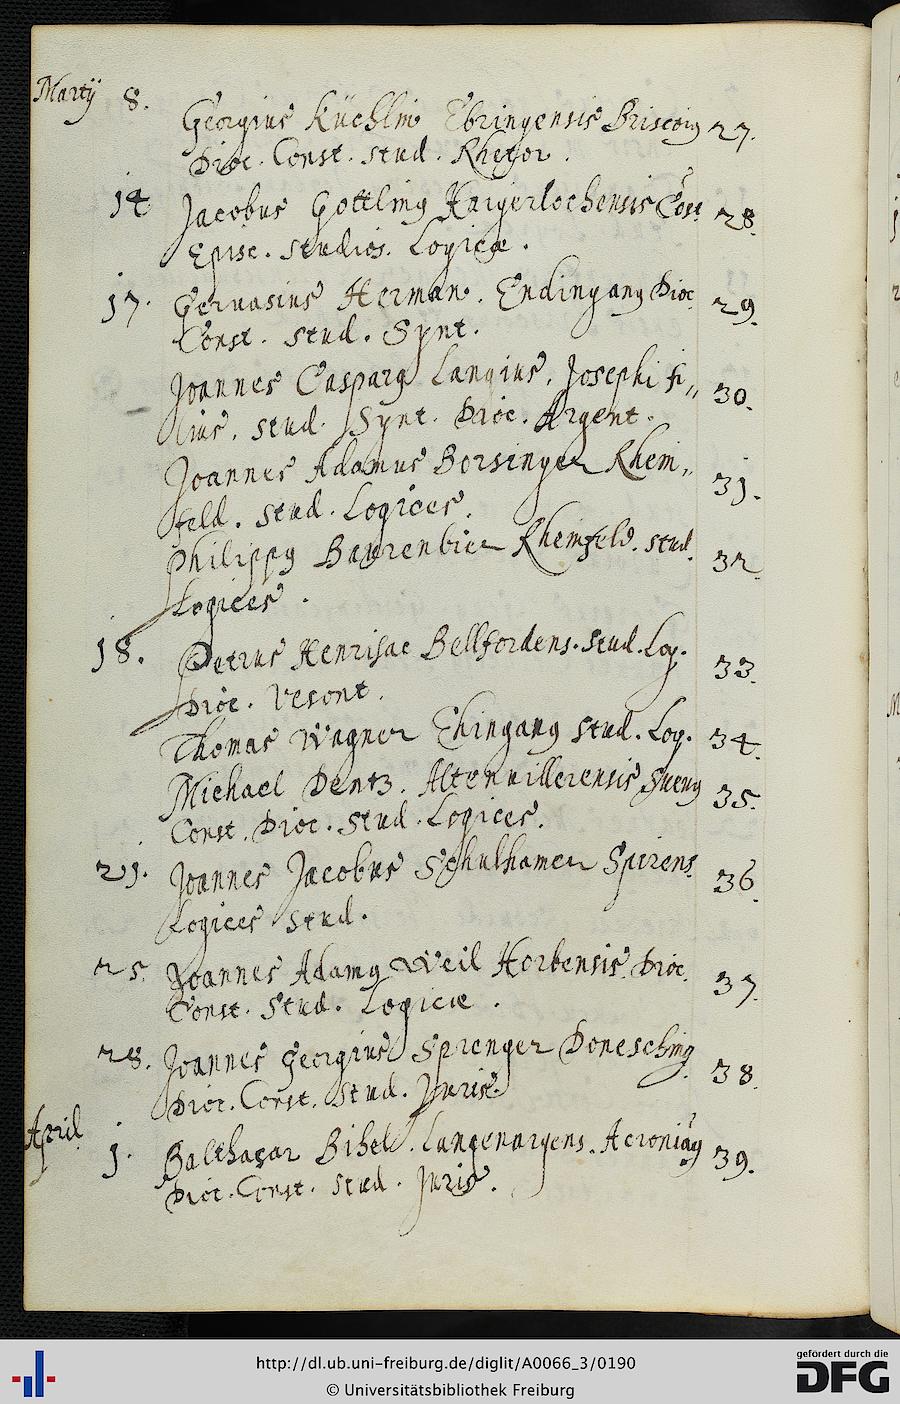 Martij 8. Georgius Küchlin Ebringensis Briscoig 27.
Dioc. Const. stud. Rhetor.
14 Jacobus Gottling Haigerlochensis Cost 28.
Episc. studios. Logicæ.
17. Geruasius Herman. Endingang Dioc 29.
Const. stud. Synt.
Joannes Casparg Langius, Josephi fi„ 30.
lius, stud. Synt. Dioc. Argent.
Joannes Adamus Borsinger Rhein„ 31.
feld. stud. Logices.
Philippg Baurenbier Rheinfeld. stud. 32.
Logices.
18. Petrus Henrisac Bellfordens. stud. Log. 33.
Dioc. Vesont.
Thomas Wagner Ehingang stud. Log. 34.
Michael Dentz. Altenuillerensis Sueng 35.
Const. Dioc. stud. Logices.
21. Joannes Jacobus Schulhamer Spirens. 36.
Logices stud.
25. Joannes Adamg Weil Horbensis Dioc. 37.
Const. Stud. Logicæ.
28. Joannes Georgius Sprenger Donesching. 38.
Dioc. Const. stud. Juris.
April 1. Balthasar Bihel. Langenargens. Acroniag 39.
Dioc. Const. stud. Juris.
http://dl.ub.uni-freiburg.de/diglit/A0066_3/0190
© Universitätsbibliothek Freiburg
gefördert durch die
DFG